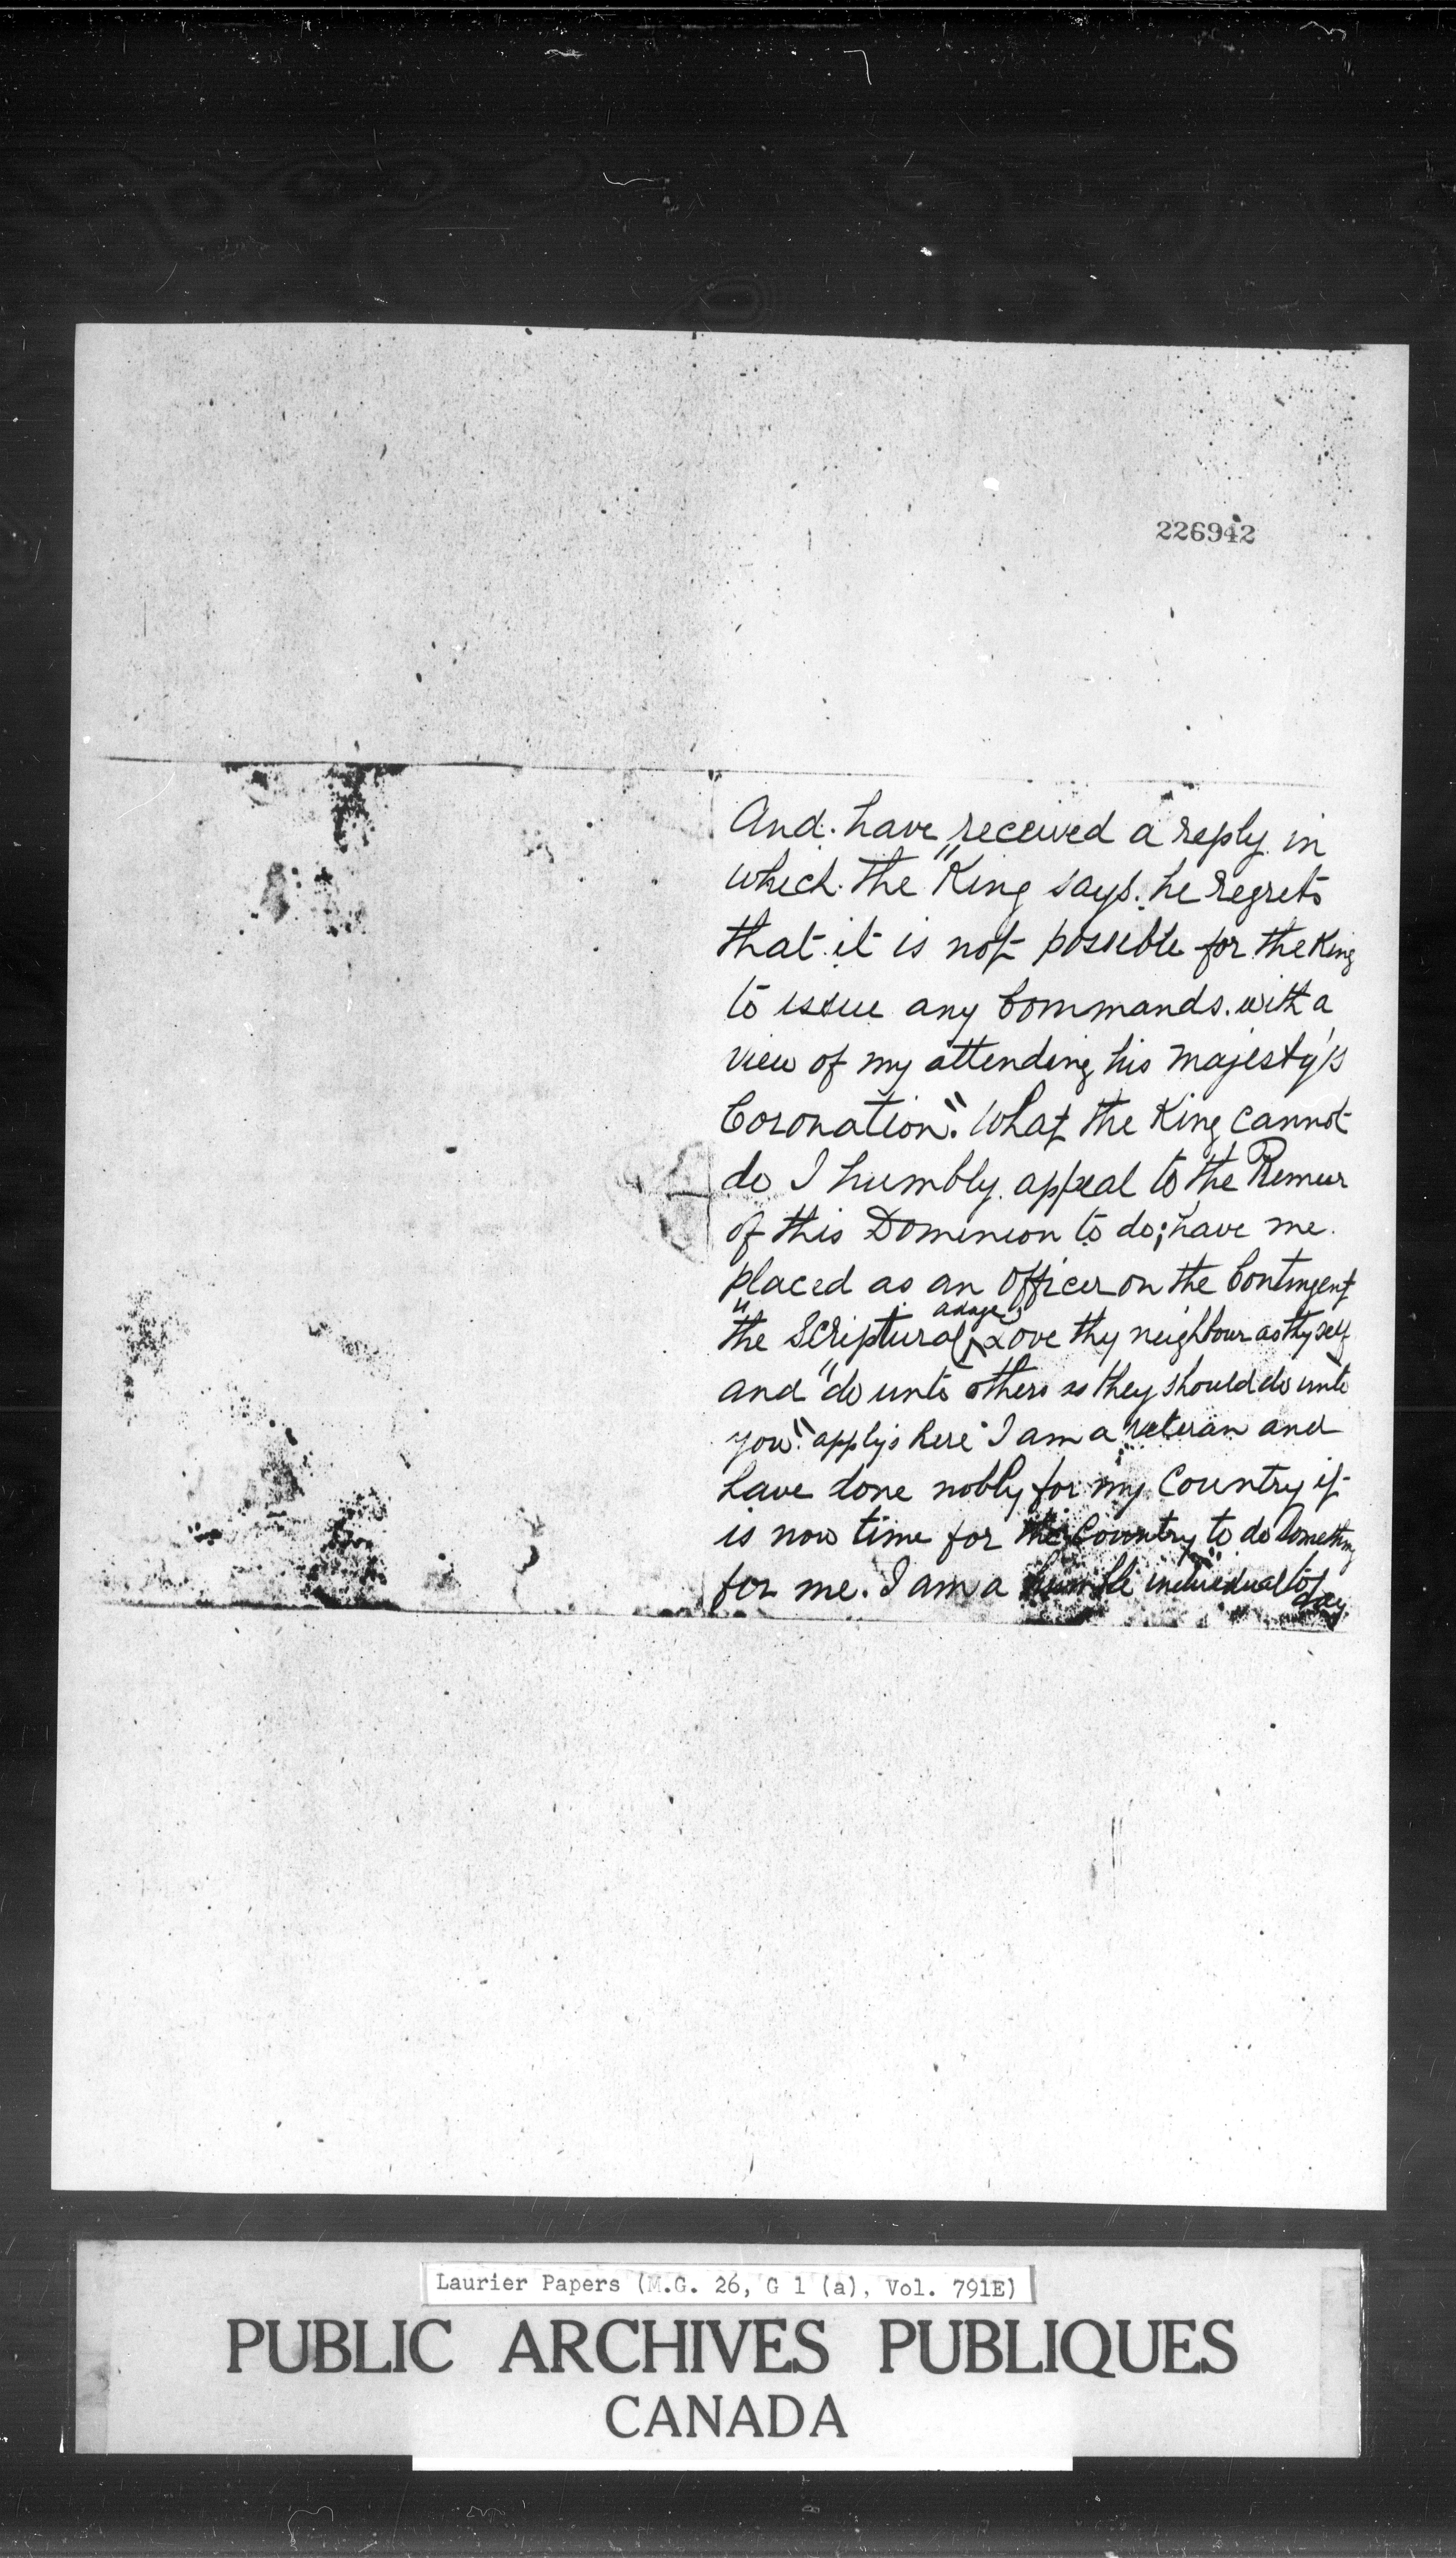 226942
And. have received a reply in
which. the "King says. he regrets
that it is not possible for the King
to issue any Commands. with a
view of my attending his Majesty's
Coronation." What the King cannot
do I humbly appeal to the Premier
of this Dominion to do; have me
placed as an Officer on the Contingent
"the Scriptural adage, Love thy neighbour as thyself
and "do unto others as they should do unto
you". applys here I am a veteran and
have done nobly for my Country it
is now time for the Country to do something
for me. I am a humble individual to day.
Laurier Papers (M.G. 26, G 1 (a), Vol. 791E)
PUBLIC ARCHIVES PUBLIQUES
CANADA